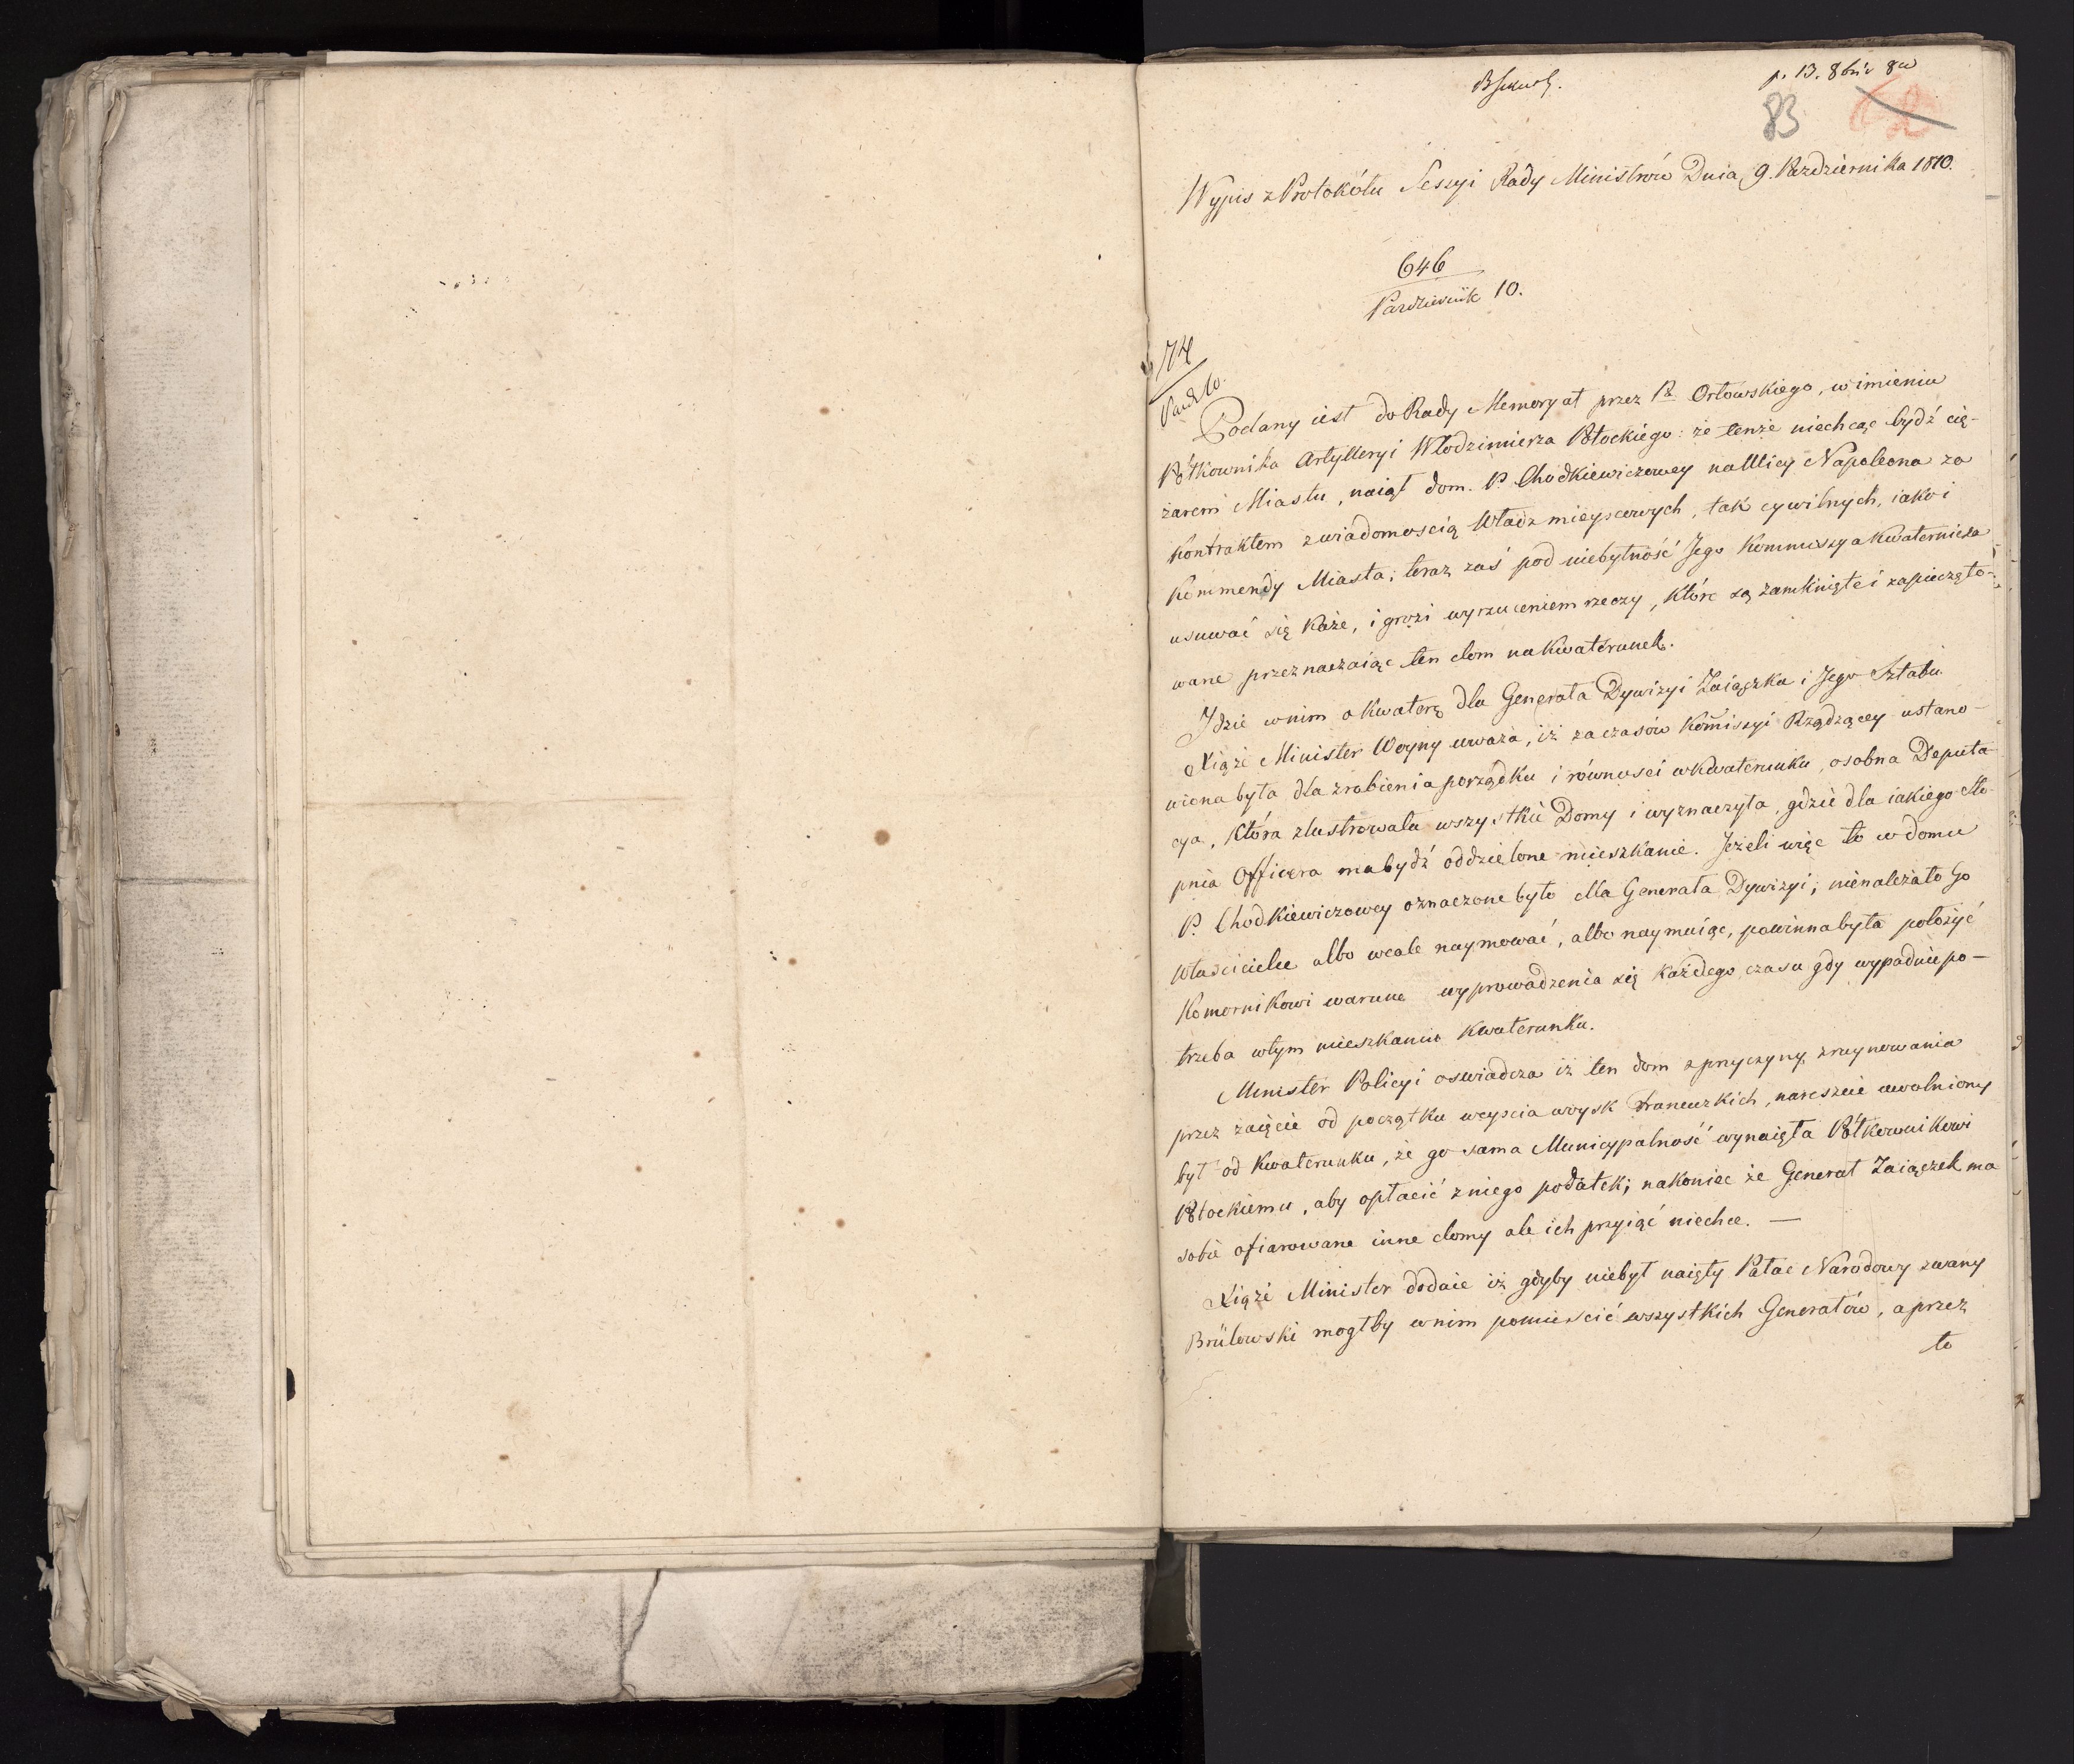 p. 13. 8bris 8w
83 62
Wypis z Protokółu Sessyi Rady Ministrów Dnia 9. Pazdziernika 1810.
646
Pazdziernik 10.
74
Pazd. 10.
Podany iest do Rady Memoryał przez P. Orłowskiego, w imieniu
Półkownika Artylleryi Włodzimierza Potockiego: że tenże niechcąc bydź cię-
żarem Miastu, naiął dom P. Chodkiewiczowey na Ulicy Napoleona za
kontraktem z wiadomoscią Władz mieyscowych, tak cywilnych, iako i
Kommendy Miasta; teraz zaś pod niebytność Jego Kommissya Kwaternicza
usuwać się każe, i grozi wyrzuceniem rzeczy, które są zamknięte i zapieczęto-
wane przeznaczaiąc ten dom na Kwaterunek.
Jdzie w nim o kwaterę dla Generała Dywizyi Zaiączka i Jego Sztabu.
Xiąże Minister Woyny uważa, iż za czasów Komissyi Rządzącey ustano-
wiona była dla zrobienia porządku i równosci w Kwaterunku, osobna Deputa-
cya, która zlustrowała wszystkie Domy i wyznaczyła, gdzie dla iakiego sto-
pnia Officera ma bydź oddzielone mieszkanie. Jeżeli więc to w domu
P. Chodkiewiczowey oznaczone było dla Generała Dywizyi; nienależało Go
właścicielce albo wcale naymować, albo naymuiąc, powinna była położyć
Komornikowi warune wyprowadzenia się każdego czasu gdy wypadnie po-
trzeba w tym mieszkaniu Kwaterunku.
Minister Policyi oswiadcza iż ten dom z przyczyny zruynowania
przez zaięcie od początku weyscia woysk Francuzkich, nareszcie uwolniony
był od Kwaterunku, że go sama Municypalność wynaięła Półkownikowi
Potockiemu, aby opłacić z niego podatek; nakoniec że Generał Zaiączek ma
sobie ofiarowane inne domy ale ich przyiąć niechce. —
Xiąże Minister dodaie iż gdyby niebył naięty Pałac Narodowy zwany
Brülowski mogłby w nim pomieścić wszystkich Generałów, a przez
to